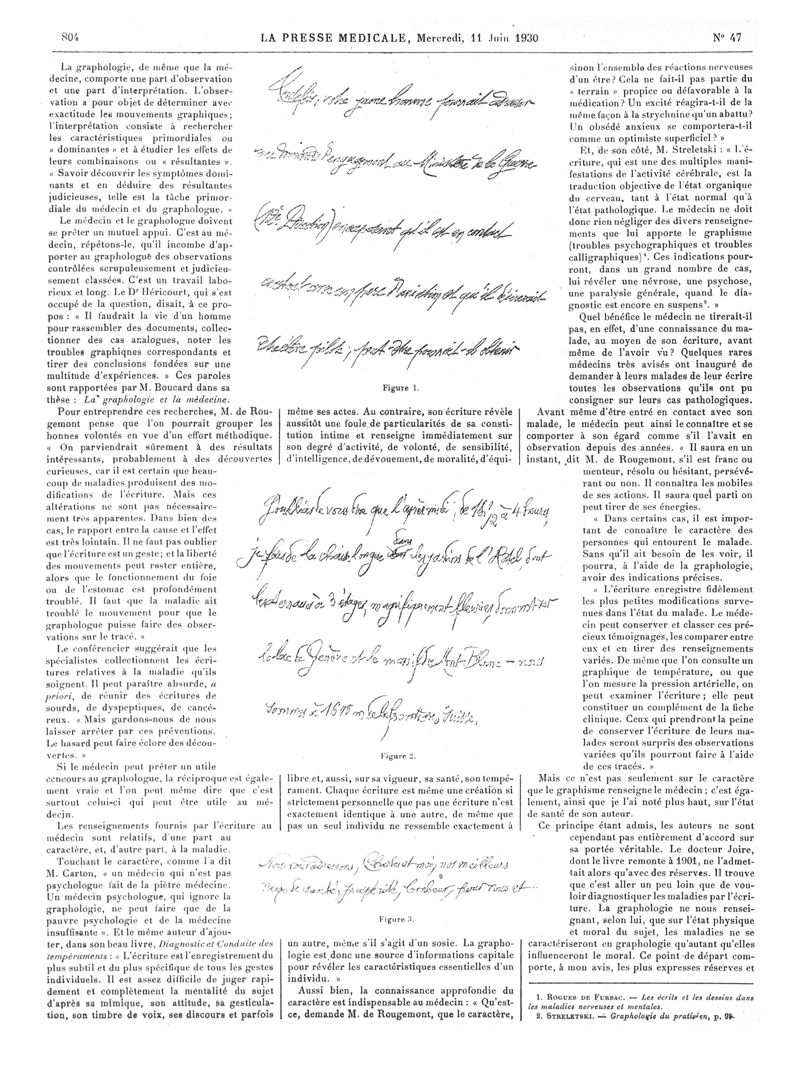 804
LA PRESSE MEDICALE, Mercredi, 11 Juin 1930
N° 47
La graphologie, de même que la mé-
decine, comporte une part d'observation
et une part d'interprétation. L'obser-
vation a pour objet de déterminer avec
exactitude les mouvements graphiques;
l'interprétation consiste à rechercher
les caractéristiques primordiales ou
« dominantes » et à étudier les effets de
leurs combinaisons ou « résultantes ».
« Savoir découvrir les symptômes domi-
nants et en déduire des résultantes
judicieuses, telle est la tâche primor-
diale du médecin et du graphologue. »
Le médecin et le graphologue doivent
se prêter un mutuel appui. C'est au mé-
decin, répétons-le, qu'il incombe d'ap-
porter au graphologue des observations
contrôlées scrupuleusement et judicieu-
sement classées. C'est un travail labo-
rieux et long. Le Dr Héricourt, qui s'est
occupé de la question, disait, à ce pro-
pos : « Il faudrait la vie d'un homme
pour rassembler des documents, collec-
tionner des cas analogues, noter les
troubles graphiqnes correspondants et
tirer des conclusions fondées sur une
multitude d'expériences. » Ces paroles
sont rapportées par M. Boucard dans sa
thèse : La graphologie et la médecine.
Pour entreprendre ces recherches, M. de Rou-
gemont pense que l'on pourrait grouper les
bonnes volontés en vue d'un effort méthodique.
« On parviendrait sûrement à des résultats
intéressants, probablement à des découvertes
curieuses, car il est certain que beau-
coup de maladies produisent des mo-
difications de l'écriture. Mais ces
altérations ne sont pas nécessaire-
ment très apparentes. Dans bien des
cas, le rapport entre la cause et l'effet
est très lointain. Il ne faut pas oublier
que l'écriture est un geste; et la liberté
des mouvements peut rester entière,
alors que le fonctionnement du foie
ou de l'estomac est profondément
troublé. Il faut que la maladie ait
troublé le mouvement pour que le
graphologue puisse faire des obser-
vations sur le tracé. »
Le conférencier suggérait que les
spécialistes collectionnent les écri-
tures relatives à la maladie qu'ils
soignent. Il peut paraître absurde, a
priori, de réunir des écritures de
sourds, de dyspeptiques, de cancé-
reux. « Mais gardons-nous de nous
laisser arrêter par ces préventions.
Le hasard peut faire éclore des décou-
vertes. »
Si le médecin peut prêter un utile
concours au graphologue, la réciproque est égale-
ment vraie et l'on peut même dire que c'est
surtout celui-ci qui peut être utile au mé-
decin.
Les renseignements fournis par l'écriture au
médecin sont relatifs, d'une part au
caractère, et, d'autre part, à la maladie.
Touchant le caractère, comme l'a dit
M. Carton, « un médecin qui n'est pas
psychologue fait de la piètre médecine.
Un médecin psychologue, qui ignore la
graphologie, ne peut faire que de la
pauvre psychologie et de la médecine
insuffisante ». Et le même auteur d'ajou-
ter, dans son beau livre, Diagnostic et Conduite des
tempéraments : « L'écriture est l'enregistrement du
plus subtil et du plus spécifique de tous les gestes
individuels. Il est assez difficile de juger rapi-
dement et complètement la mentalité du sujet
d'après sa mimique, son attitude, sa gesticula-
tion, son timbre de voix, ses discours et parfois
votre jeune homme pourrait adresser
une demande d'engagement au Ministère de la Guerre
Direction) en exposant qu'il est en contact
constant avec un Parisien et qu'il désirerait
pilote; peut-être pourrait-il obtenir
Figure 1.
même ses actes. Au contraire, son écriture révèle
aussitôt une foule de particularités de sa consti-
tution intime et renseigne immédiatement sur
son degré d'activité, de volonté, de sensibilité,
d'intelligence, de dévouement, de moralité, d'équi-
J'oubliais de vous dire que l'après-midi, de 1h1/2 à 4 heures,
je fais de la chaise longue dans les jardins de l'Hôtel, dont
les terrasses à 3 étages, magnifiquement fleuries, dominent
le lac de Genève et le massif du Mont Blanc – nous
sommes à 1500 m Suisse.
Figure 2.
libre et, aussi, sur sa vigueur, sa santé, son tempé-
rament. Chaque écriture est même une création si
strictement personnelle que pas une écriture n'est
exactement identique à une autre, de même que
pas un seul individu ne ressemble exactement à
Nous vous adressons, et moi, nos meilleurs
vœux de santé, prospérité, bonheur, pour vous et
Figure 3.
un autre, même s'il s'agit d'un sosie. La grapho-
logie est donc une source d'informations capitale
pour révéler les caractéristiques essentielles d'un
individu. »
Aussi bien, la connaissance approfondie du
caractère est indispensable au médecin : « Qu'est-
ce, demande M. de Rougemont, que le caractère,
sinon l'ensemble des réactions nerveuses
d'un être? Cela ne fait-il pas partie du
« terrain » propice ou défavorable à la
médication? Un excité réagira-t-il de la
même façon à la strychnine qu'un abattu?
Un obsédé anxieux se comportera-t-il
comme un optimiste superficiel? »
Et, de son côté, M. Streletski : « L'é-
criture, qui est une des multiples mani-
festations de l'activité cérébrale, est la
traduction objective de l'état organique
du cerveau, tant à l'état normal qu'à
l'état pathologique. Le médecin ne doit
donc rien négliger des divers renseigne-
ments que lui apporte le graphisme
(troubles psychographiques et troubles
calligraphiques)¹. Ces indications pour-
ront, dans un grand nombre de cas,
lui révéler une névrose, une psychose,
une paralysie générale, quand le dia-
gnostic est encore en suspens². »
Quel bénéfice le médecin ne tirerait-il
pas, en effet, d'une connaissance du ma-
lade, au moyen de son écriture, avant
même de l'avoir vu? Quelques rares
médecins très avisés ont inauguré de
demander à leurs malades de leur écrire
toutes les observations qu'ils ont pu
consigner sur leurs cas pathologiques.
Avant même d'être entré en contact avec son
malade, le médecin peut ainsi le connaître et se
comporter à son égard comme s'il l'avait en
observation depuis des années. « Il saura en un
instant, dit M. de Rougemont, s'il est franc ou
menteur, résolu ou hésitant, persévé-
rant ou non. Il connaîtra les mobiles
de ses actions. Il saura quel parti on
peut tirer de ses énergies.
« Dans certains cas, il est impor-
tant de connaître le caractère des
personnes qui entourent le malade.
Sans qu'il ait besoin de les voir, il
pourra, à l'aide de la graphologie,
avoir des indications précises.
« L'écriture enregistre fidèlement
les plus petites modifications surve-
nues dans l'état du malade. Le méde-
cin peut conserver et classer ces pré-
cieux témoignages, les comparer entre
eux et en tirer des renseignements
variés. De même que l'on consulte un
graphique de température, ou que
l'on mesure la pression artérielle, on
peut examiner l'écriture; elle peut
constituer un complément de la fiche
clinique. Ceux qui prendront la peine
de conserver l'écriture de leurs ma-
lades seront surpris des observations
variées qu'ils pourront faire à l'aide
de ces tracés. »
Mais ce n'est pas seulement sur le caractère
que le graphisme renseigne le médecin; c'est éga-
lement, ainsi que je l'ai noté plus haut, sur l'état
de santé de son auteur.
Ce principe étant admis, les auteurs ne sont
cependant pas entièrement d'accord sur
sa portée véritable. Le docteur Joire,
dont le livre remonte à 1901, ne l'admet-
tait alors qu'avec des réserves. Il trouve
que c'est aller un peu loin que de vou-
loir diagnostiquer les maladies par l'écri-
ture. La graphologie ne nous rensei-
gnant, selon lui, que sur l'état physique
et moral du sujet, les maladies ne se
caractériseront en graphologie qu'autant qu'elles
influenceront le moral. Ce point de départ com-
porte, à mon avis, les plus expresses réserves et
1. ROGUES DE FURSAC. — Les écrits et les dessins dans
les maladies nerveuses et mentales.
2. STRELETSKI. — Graphologie du praticien, p. 95.